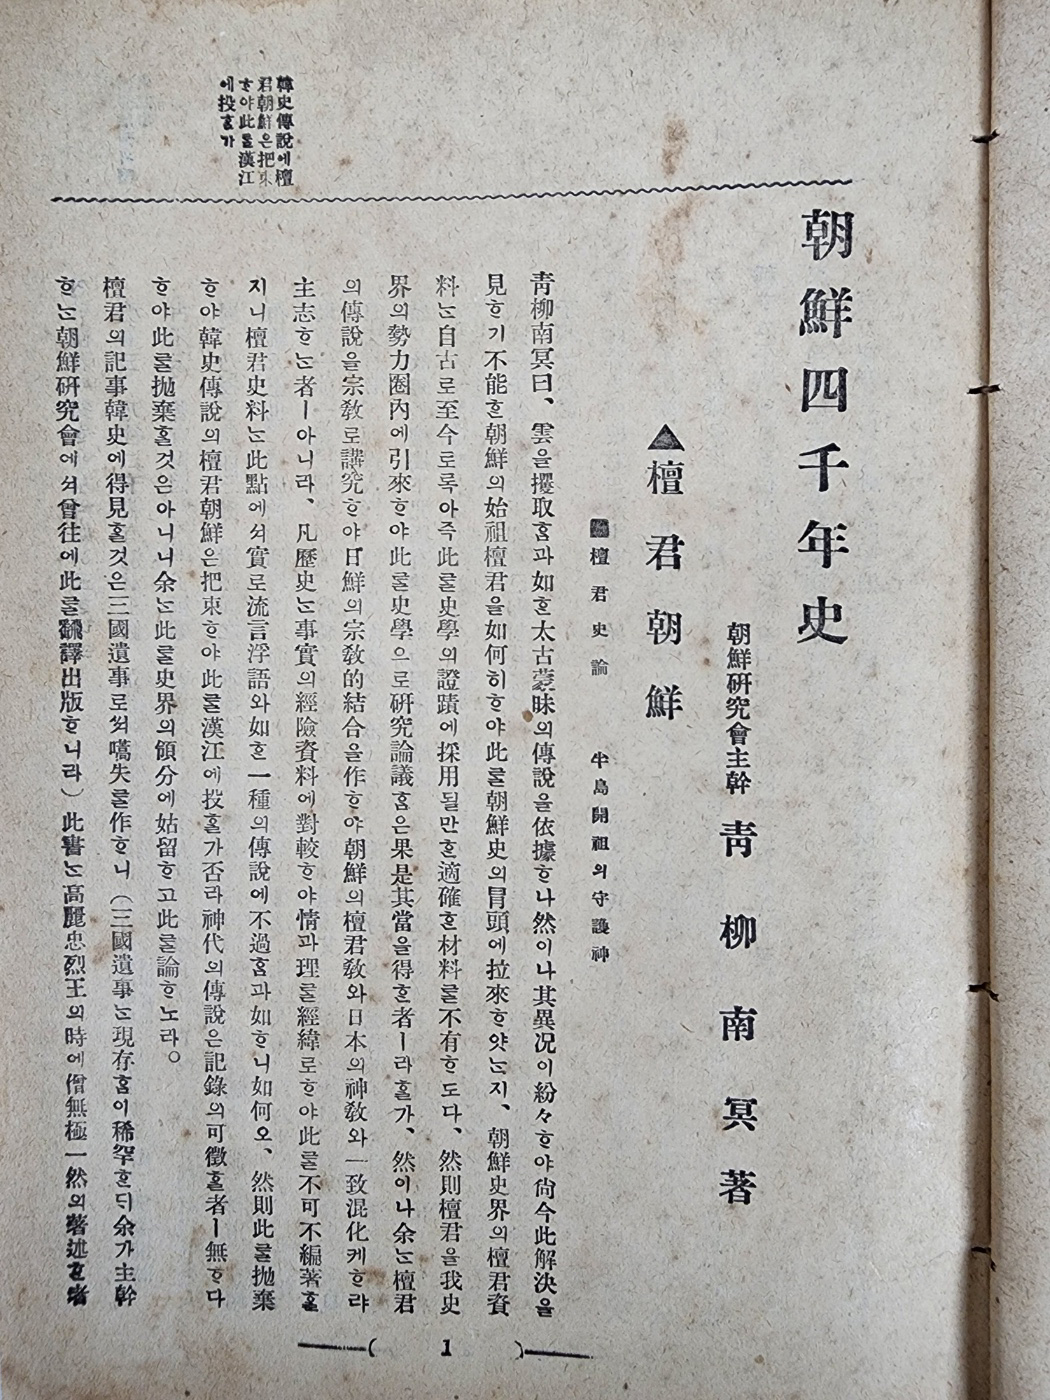 朝鮮四千年史
朝鮮硏究會主幹 靑柳南冥 著
▲檀君朝鮮
檀君史論 半島開祖의守護神
靑柳南冥曰、雲을攫取홈과如ᄒᆞᆫ太古蒙昧의傳說을依據ᄒᆞ나然이나其異況이紛々ᄒᆞ야尙今此解決을
見ᄒᆞ기不能ᄒᆞᆫ朝鮮의始祖檀君을如何히ᄒᆞ야此ᄅᆞᆯ朝鮮史의冒頭에拉來ᄒᆞ얏ᄂᆞᆫ지、朝鮮史界의檀君資
料ᄂᆞᆫ自古로至今로록아즉此ᄅᆞᆯ史學의證蹟에採用될만ᄒᆞᆫ適確ᄒᆞᆫ材料ᄅᆞᆯ不有ᄒᆞ도다、然則檀君을我史
界의勢力圈內에引來ᄒᆞ야此ᄅᆞᆯ史學으로硏究論議홈은果是其當을得ᄒᆞᆫ者ㅣ라ᄒᆞᆯ가、然이나余ᄂᆞᆫ檀君
의傳說을宗敎로講究ᄒᆞ야日鮮의宗敎的結合을作ᄒᆞ야朝鮮의檀君敎와日本의神敎와一致混化케ᄒᆞ랴
主志ᄒᆞᄂᆞᆫ者ㅣ아니라、凡歷史ᄂᆞᆫ事實의經險資料에對較ᄒᆞ야情과理ᄅᆞᆯ經緯로ᄒᆞ야此ᄅᆞᆯ不可不編著ᄒᆞᆯ
지니檀君史料ᄂᆞᆫ此點에셔實로流言浮語와如ᄒᆞᆫ一種의傳說에不過홈과如ᄒᆞ니如何오、然則此ᄅᆞᆯ抛棄
ᄒᆞ야韓史傳說의檀君朝鮮은把束ᄒᆞ야此ᄅᆞᆯ漢江에投ᄒᆞᆯ가否라神代의傳說은記錄의可徵ᄒᆞᆯ者ㅣ無ᄒᆞ다
ᄒᆞ야此ᄅᆞᆯ抛棄ᄒᆞᆯ것은아니니余ᄂᆞᆫ此ᄅᆞᆯ史界의領分에姑留ᄒᆞ고此ᄅᆞᆯ論ᄒᆞ노라。
檀君의記事韓史에得見ᄒᆞᆯ것은三國遺事로써嚆失ᄅᆞᆯ作ᄒᆞ니（三國遺事ᄂᆞᆫ現存홈이稀罕ᄒᆞᆫ디余가主幹
ᄒᆞᄂᆞᆫ朝鮮硏究會에셔曾往에此ᄅᆞᆯ飜譯出版ᄒᆞ니라）此書ᄂᆞᆫ高麗忠烈王의時에僧無極一然의著述ᄒᆞᆫ者
韓史傳說에檀
君朝鮮은把束
ᄒᆞ야此ᄅᆞᆯ漢江
에投ᄒᆞᆯ가
( 1 )